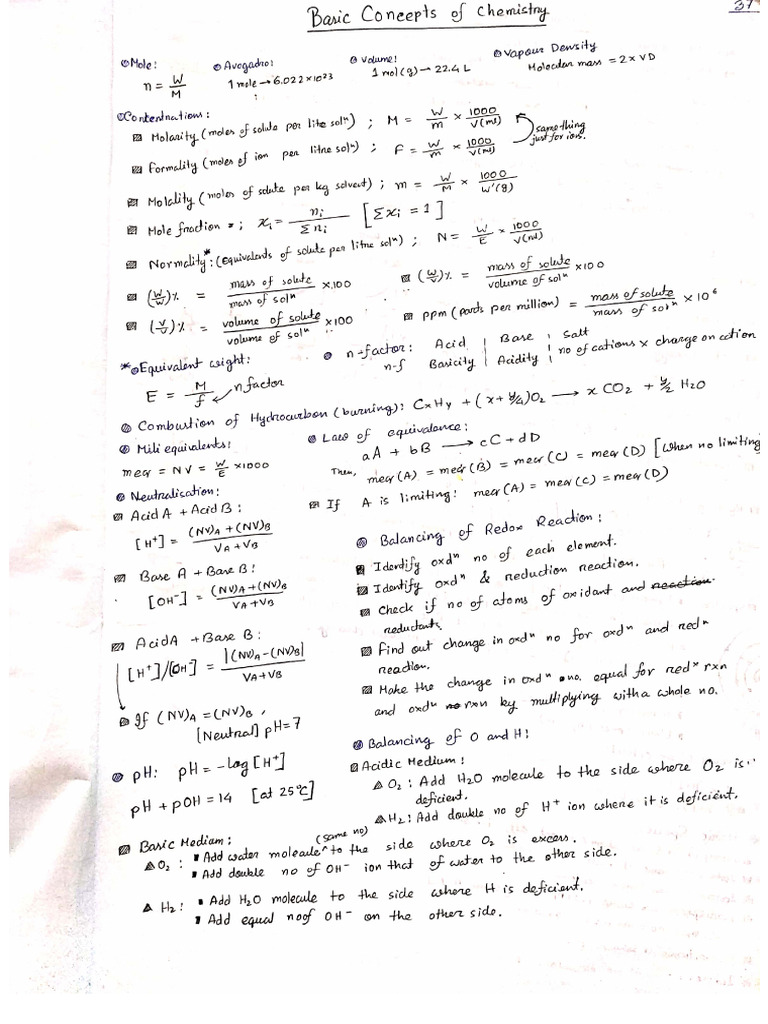 Basic Concepts of Chemistry
37
Mole:
n = W/M
Avogadro:
1 mole → 6.022×10²³
Volume:
1 mol(g) → 22.4 L
Vapour Density
Molecular mass = 2 × VD
Concentration:
Molarity (moles of solute per litre solⁿ) ; M = W/m × 1000/V(ml)
Formality (moles of ion per litre solⁿ) ; F = W/m × 1000/V(ml)
same thing
just for ions.
Molality (moles of solute per kg solvent) ; m = W/M × 1000/W'(g)
Mole fraction ; χi = ni/Σni [Σχi = 1]
Normality* : (equivalents of solute per litre solⁿ) ; N = W/E × 1000/V(ml)
(W/W)% = mass of solute/mass of solⁿ × 100
(W/V)% = mass of solute/volume of solⁿ × 100
(V/V)% = volume of solute/volume of solⁿ × 100
ppm (parts per million) = mass of solute/mass of solⁿ × 10⁶
* Equivalent weight:
E = M/f ← n factor
n-factor: Acid | Base | Salt
n-f Basicity | Acidity | no of cations × charge on cation
Combustion of Hydrocarbon (burning): CxHy + (x + y/4)O₂ → x CO₂ + y/2 H₂O
Mili equivalents:
meqr = NV = W/E × 1000
Law of equivalance:
aA + bB → cC + dD
Then, meqr(A) = meqr(B) = meqr(C) = meqr(D) [When no limiting
If A is limiting: meqr(A) = meqr(C) = meqr(D)
Neutralisation:
Acid A + Acid B:
[H⁺] = (NV)A + (NV)B / VA + VB
Base A + Base B:
[OH⁻] = (NV)A + (NV)B / VA + VB
Acid A + Base B:
[H⁺]/[OH] = |(NV)A − (NV)B| / VA + VB
If (NV)A = (NV)B ,
[Neutral] pH = 7
pH: pH = −log [H⁺]
pH + pOH = 14 [at 25°C]
Balancing of Redox Reaction:
Identify oxdⁿ no of each element.
Identify oxdⁿ & reduction reaction.
Check if no of atoms of oxidant and reaction
reductants.
Find out change in oxdⁿ no for oxdⁿ and redⁿ
reaction.
Make the change in oxdⁿ no. equal for redⁿ rxn
and oxdⁿ rxn by multiplying with a whole no.
Balancing of O and H:
Acidic Medium:
O₂ : Add H₂O molecule to the side where O₂ is
deficient.
H₂ : Add double no of H⁺ ion where it is deficient.
Basic Medium:
O₂ : Add water molecule (same no) to the side where O₂ is excess.
Add double no of OH⁻ ion that of water to the other side.
H₂ : Add H₂O molecule to the side where H is deficient.
Add equal no of OH⁻ on the other side.